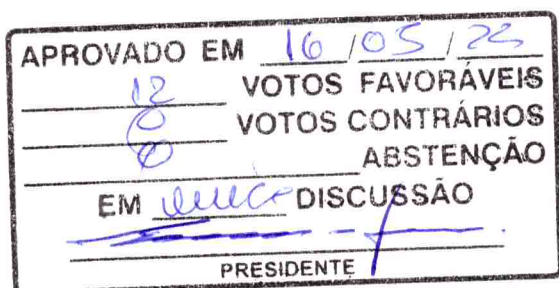 APROVADO EM 16 /05 / 22
12 VOTOS FAVORÁVEIS
0 VOTOS CONTRÁRIOS
0 ABSTENÇÃO
EM única DISCUSSÃO
PRESIDENTE